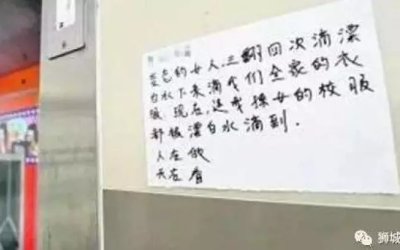 色的女人,三翻四次滴漂
白水下来滴我们全家的衣
服.现在,连我孙女的校服
都被漂白水滴到.
人在做
天在看
狮城